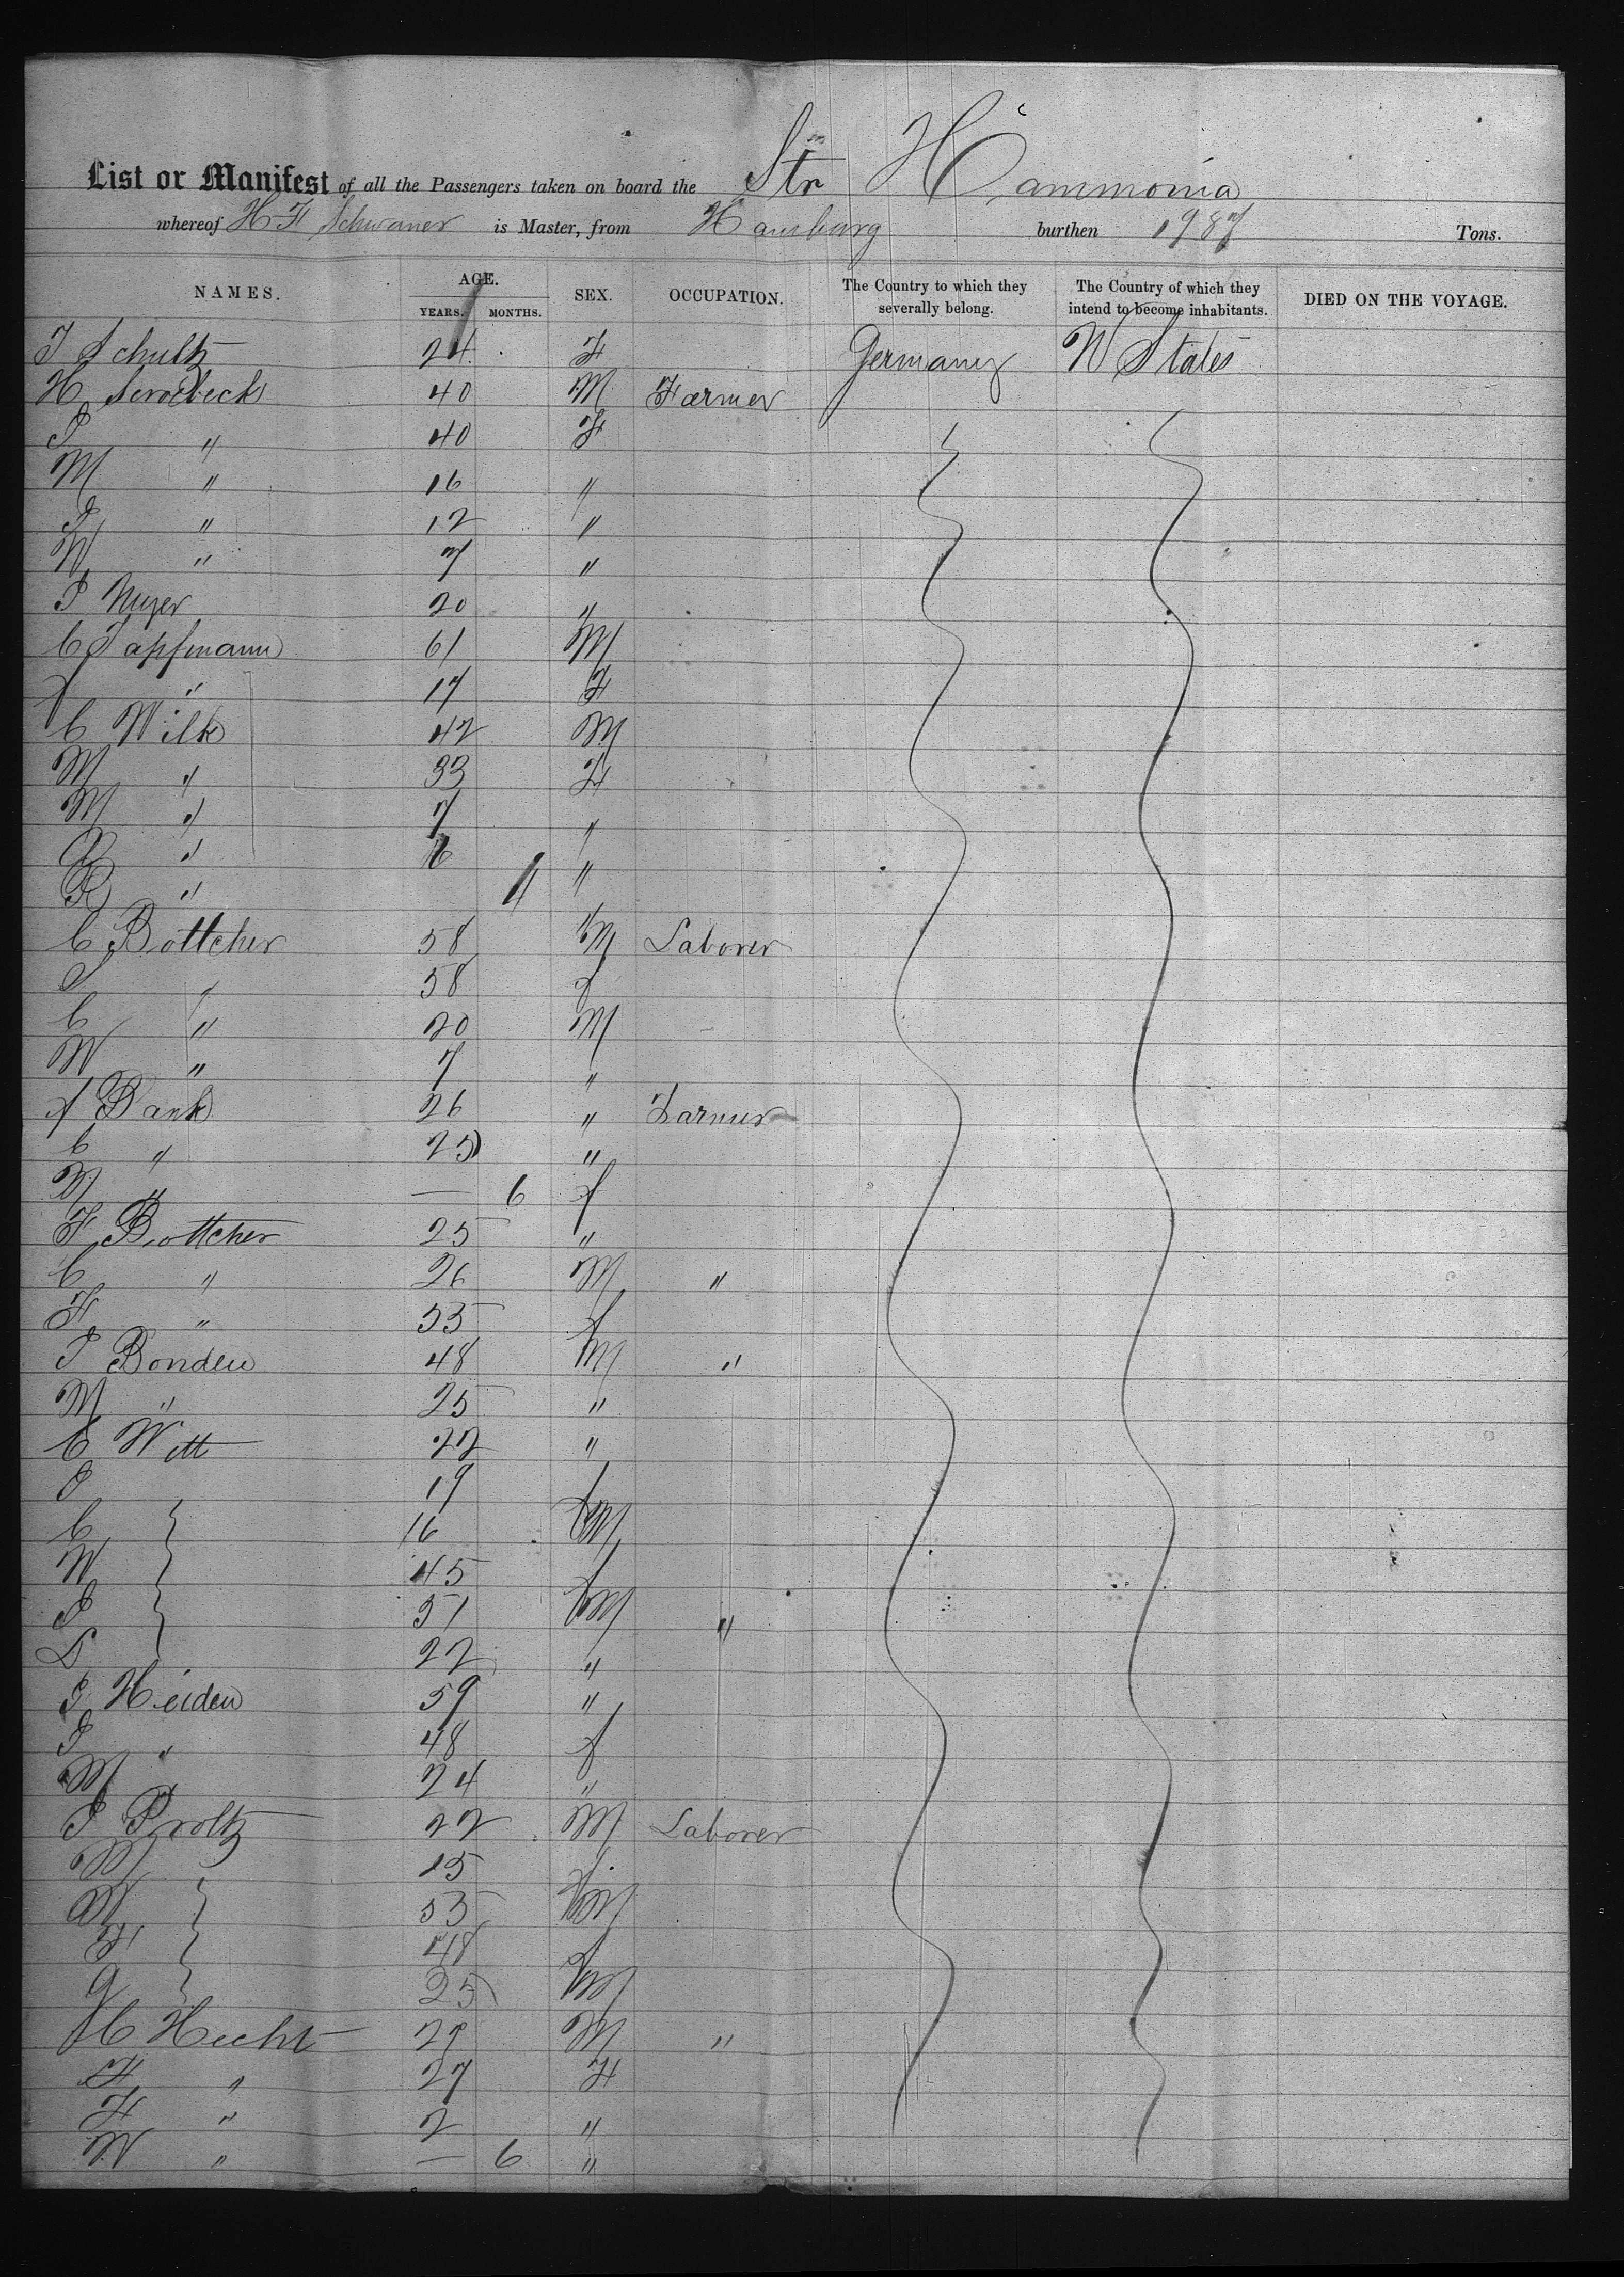 List or Manifest of all the Passengers taken on board the Str Hammonia
whereof H F Schwaner is Master, from Hamburg burthen 1987 Tons.
NAMES. AGE. YEARS. MONTHS. SEX. OCCUPATION. The Country to which they severally belong. The Country of which they intend to become inhabitants. DIED ON THE VOYAGE.
J Schultz 24 F Germany U States
H 40 M Farmer
" 40 F
M " 16 "
" 12 "
W " 7 "
20 "
C 61 M
" 17 F
C Wilk 42 M
M " 33 F
M " 7 "
" 6 "
" "
C Bottcher 58 M Laborer
" 58 f
C " 20 M
W " 7 "
f Bank 26 " Farmer
C " 25 "
M " — 6 f
F Bottcher 25 "
C " 26 M "
F " 55 f
J Bonden 48 M "
M " 25 "
C Witt 22 "
19 f
C 16 M
W 45 f
51 M "
22 "
J Heiden 59 "
J " 48 f
M 24 "
J Proltz 22 M Laborer
M 15 f
W 53 M
F 48 f
25 M
C Hecht 29 M "
F " 27 F
F " 2 "
W " — 6 "